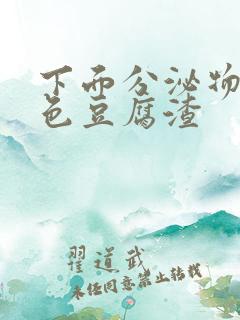 下面分泌物
色豆腐渣
翟道武
未经同意禁止转载